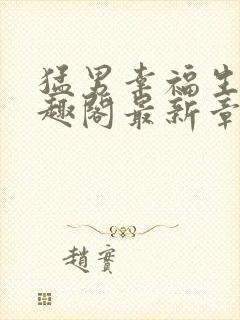 猛男幸福生
趣阁最新章
趙實